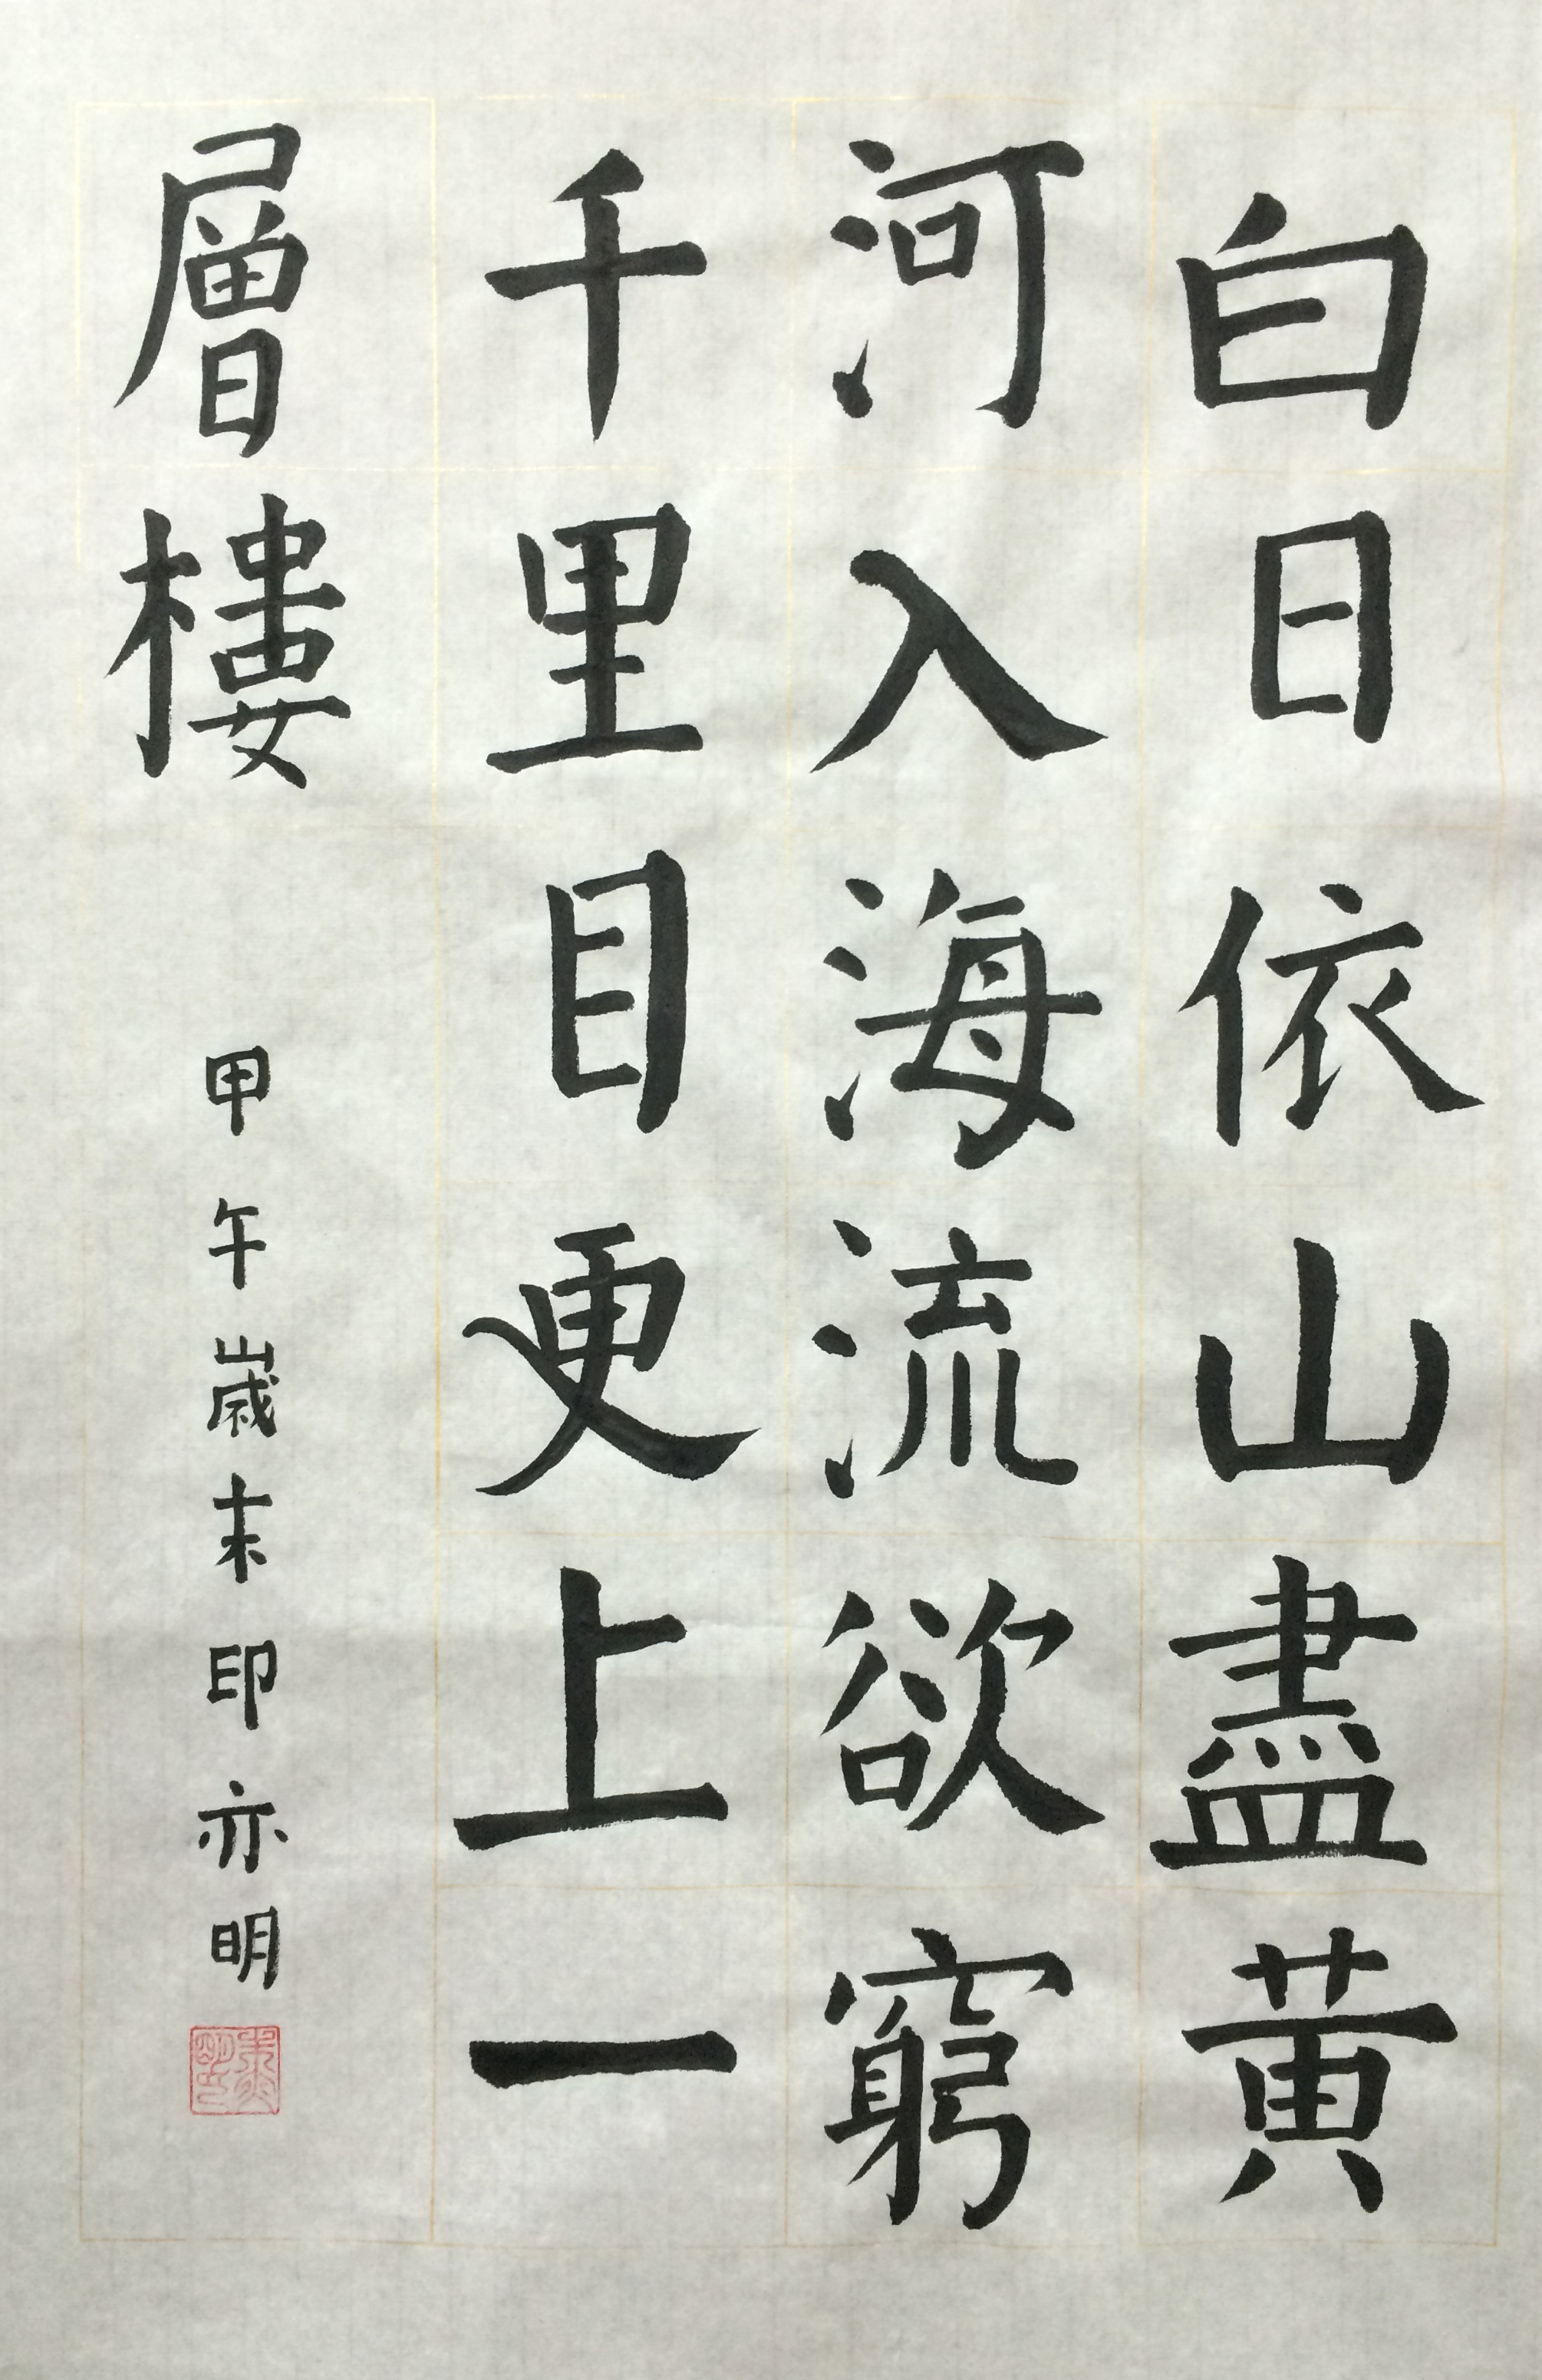 白日依山盡黄
河入海流欲窮
千里目更上一
層樓
甲午歳末印亦明